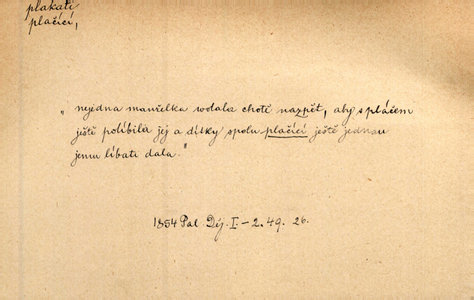 plakati
plačící,
„nejedna manželka wolala chotě nazpět, aby s pláčem
ještě políbila jej a dítky spolu plačící ještě jednou
jemu líbati dala."
1854 Pal. Děj. I.-2. 49. 26.